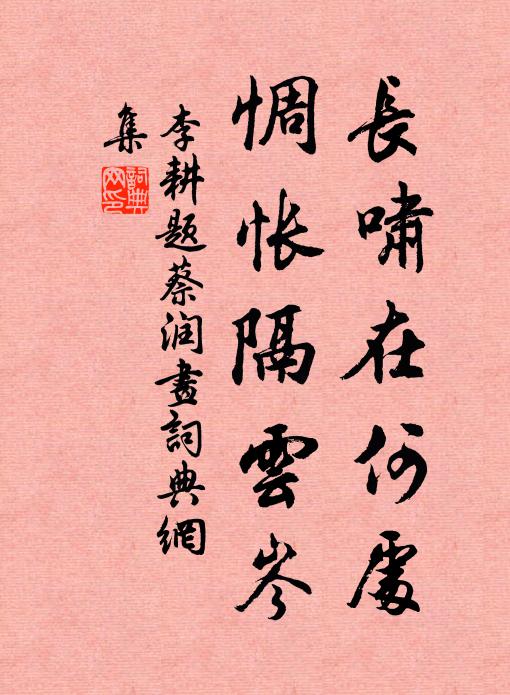 長嘯在何處
惆怅隔雲岑
李耕題蔡润畫詞典網
集
詞典网印